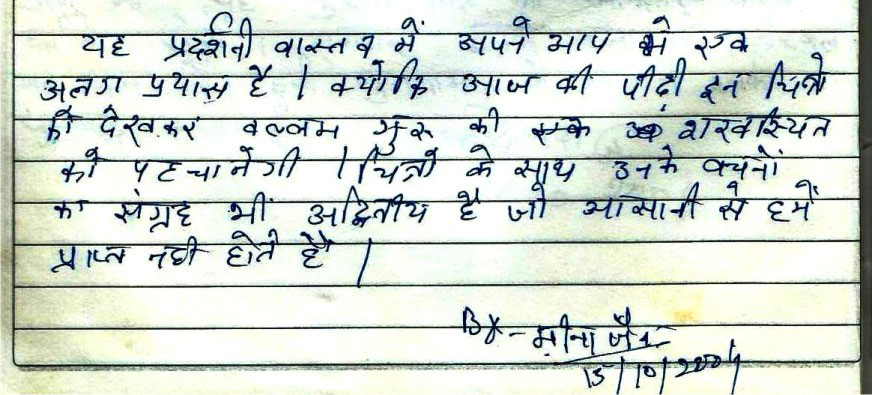 यह प्रदर्शनी वास्तव में अपने आप मे एक
अलग प्रयास है । क्योकि आज की पीढ़ी इन चित्रो
को देखकर वल्लभ गुरु की शख्सियत
को पहचानेगी । चित्रो के साथ उनके वचनों
का संग्रह भी अद्वितीय है जो आसानी से हमें
प्राप्त नही होते है ।
By - मीना जैन
15/10/2004